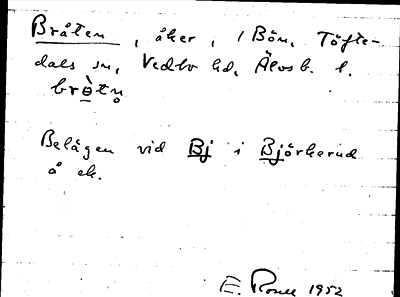 Bråten, åker, i Bön, Töfte-
dals sn, Vedbo hd, Älvsb. l.
brò̱tn̥
Belägen vid Bj i Björkerud
å ek.
E. 1952